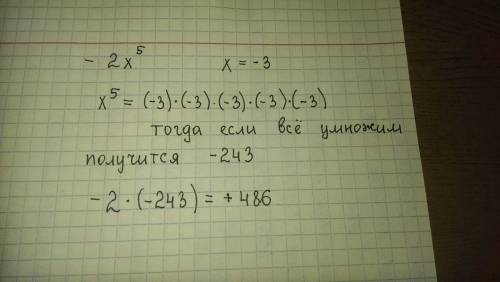 - 2x⁵ x = -3
x⁵ = (-3)·(-3)·(-3)·(-3)·(-3)
тогда если всё умножим
получится -243
-2·(-243) = +486